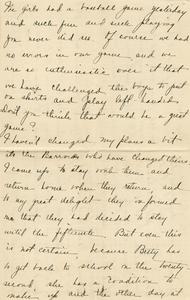 We girls had a baseball game yesterday
and such fun and such playing
you never did see. Of course we had
no errors in our game, and we
are so enthusiastic over it that
we have challenged the boys to put
on skirts and play left handed.
Don't you think that would be a great
game?
I haven't changed my plans a bit
its the Barrows who have changed theirs.
I came up to stay with them and
return home when they return, and
to my great delight they informed
me that they had decided to stay
until the fifteenth. But even this
is not certain, because Betty has
to get back to school on the twenty
second, as she has a condition to
make up and the other day at